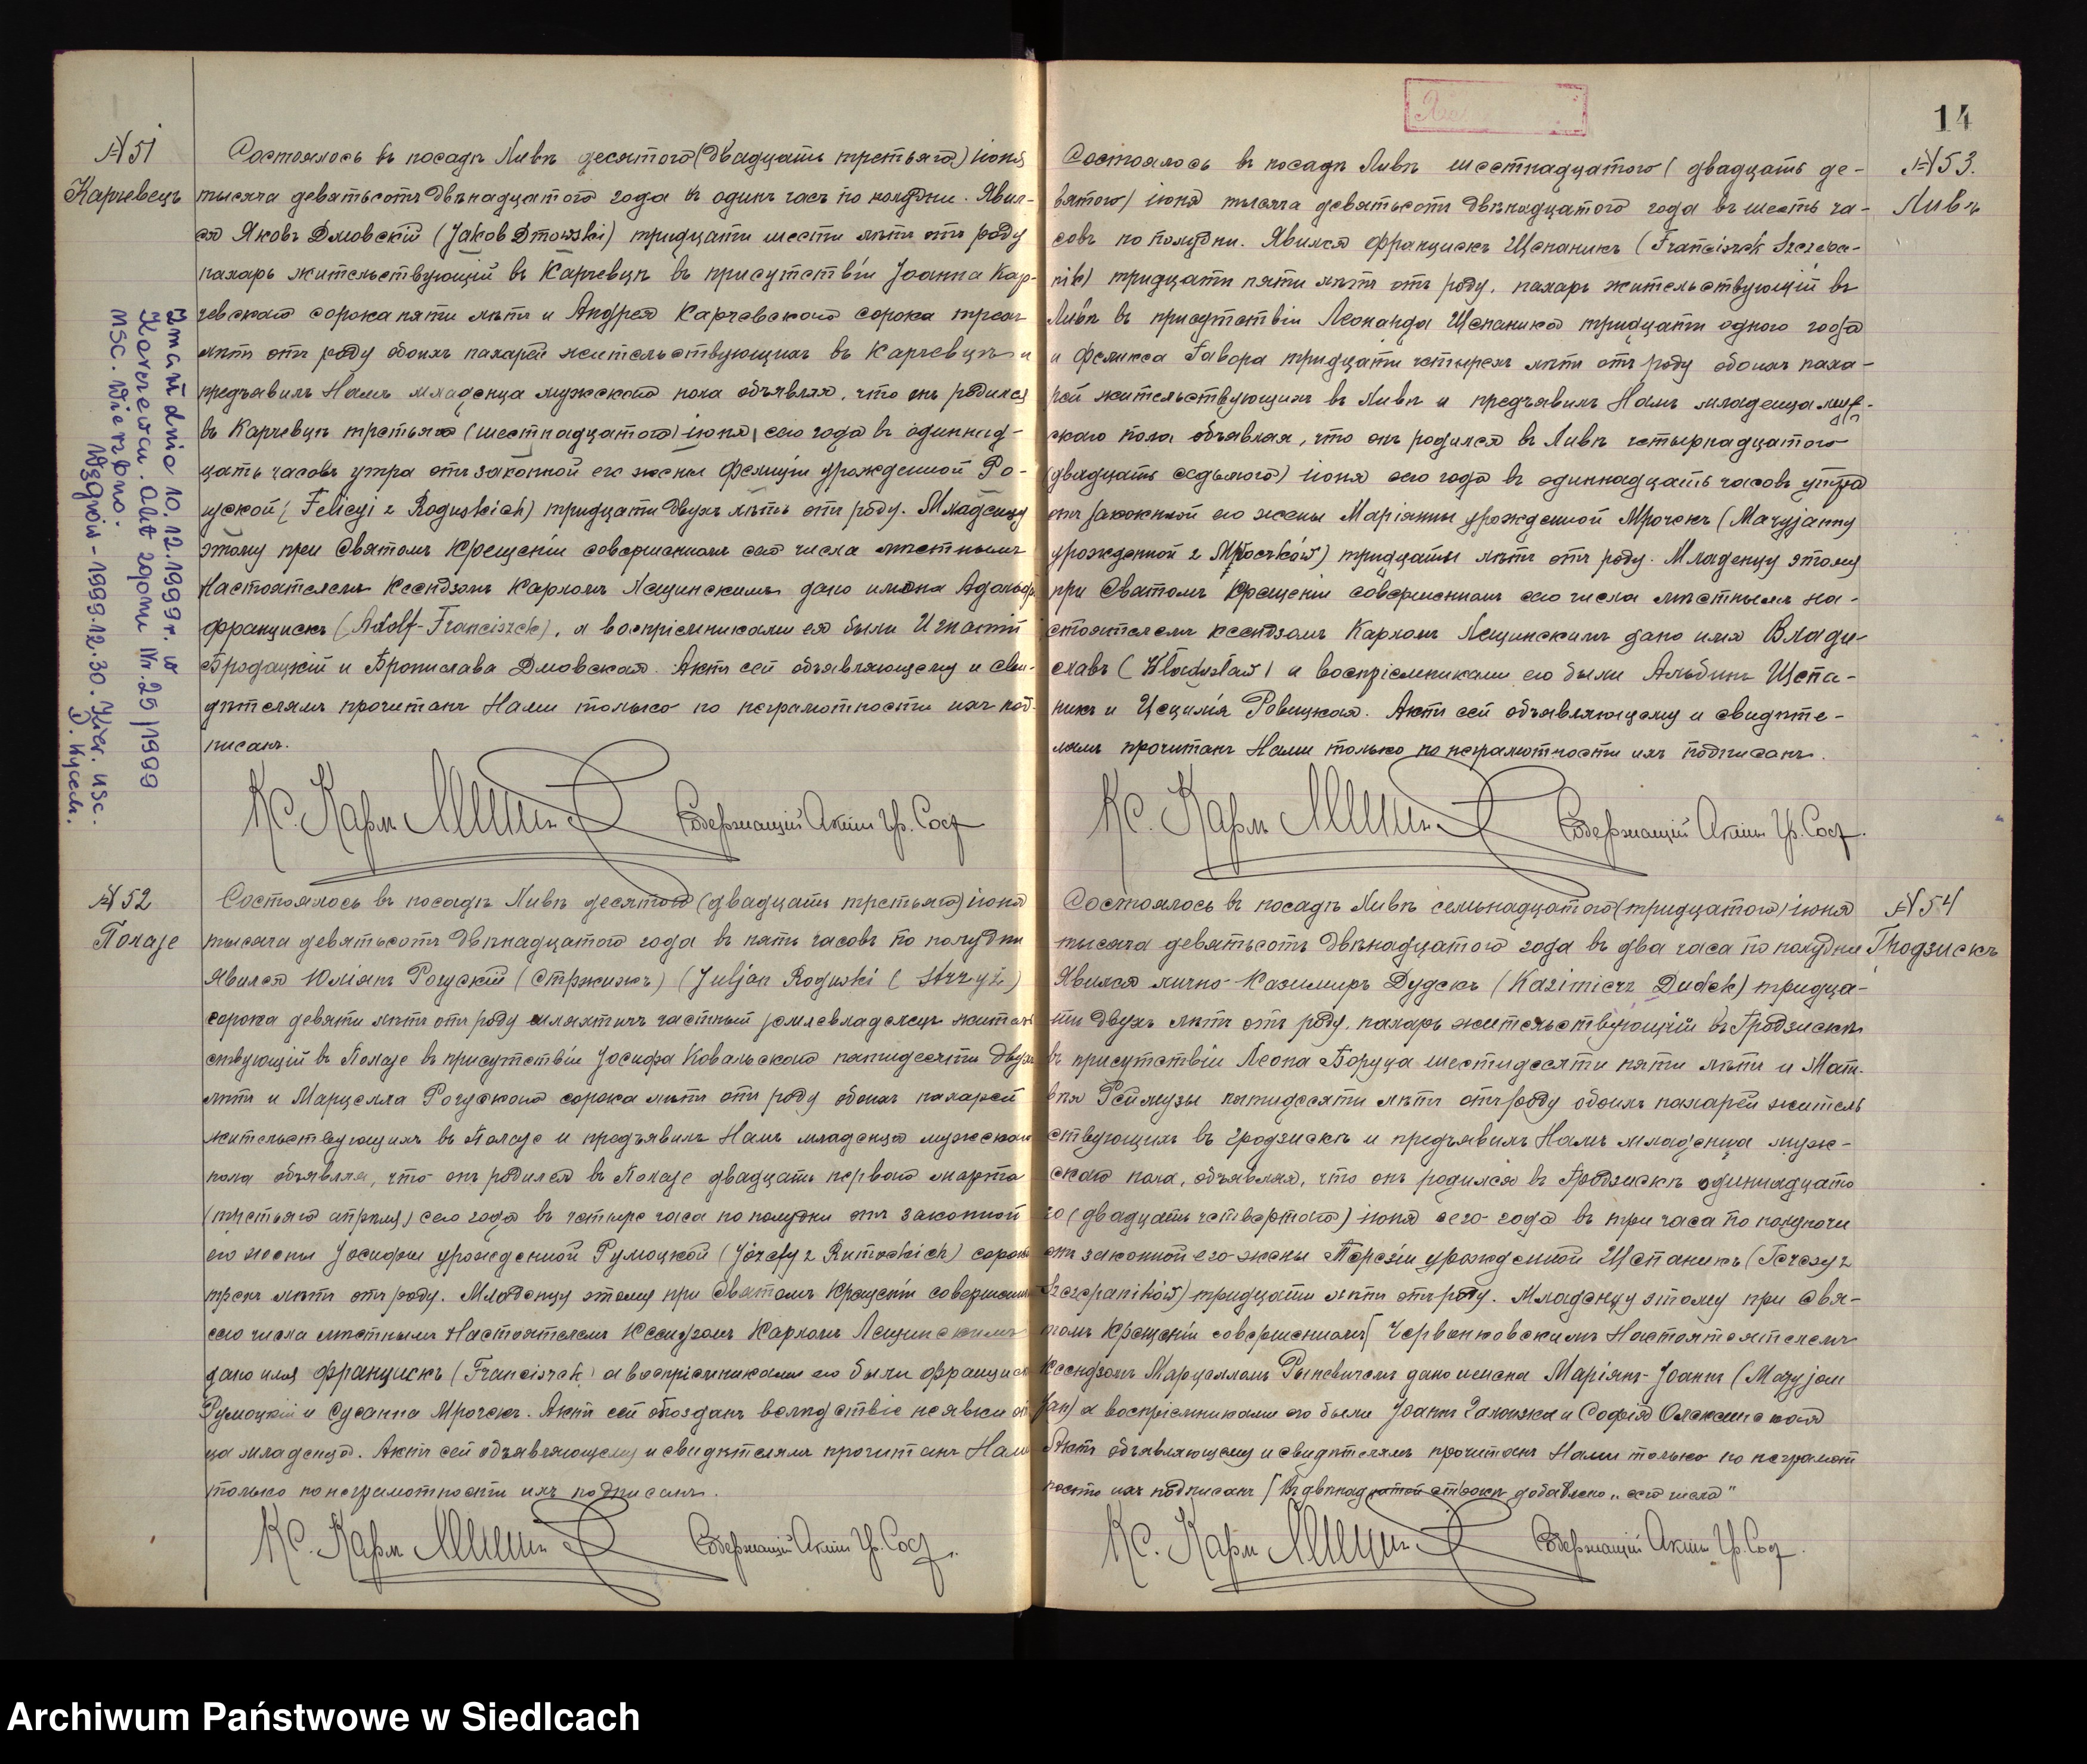 № 51
Карчевецъ
Состоялось въ посадѣ Ливѣ десятаго (двадцать третьяго) іюня
тысяча девятьсотъ двѣнадцатаго года въ одинъ часъ по полудни. Явил-
ся Яковъ Дмовскій (Jakob Dmowski) тридцати шести лѣтъ отъ роду
пахарь жительствующій въ Карчевцѣ въ присутствіи Іоанна Кар-
чевскаго сорока пяти лѣтъ и Андрея Карчевскаго сорока трехъ
лѣтъ отъ роду обоихъ пахарей жительствующихъ въ Карчевцѣ и
предъявилъ Намъ младенца мужескаго пола объявляя, что онъ родился
въ Карчевцѣ третьяго (шестнадцатаго) іюня, сего года въ одиннад-
цать часовъ утра отъ законной его жены Фелиціи урожденной Ро-
гуской (Felicyi z Roguskich) тридцати двухъ лѣтъ отъ роду. Младенцу
этому при Святомъ Крещеніи совершенномъ сего числа мѣстнымъ
Настоятелемъ Ксендзомъ Карломъ Лещинскимъ дано имена Адольфъ
Францискъ (Adolf-Franciszek), а воспріемниками его были Игнатій
Бродацкій и Брониславa Дмовская. Актъ сей объявляющему и сви-
дѣтелямъ прочитанъ Нами только по неграмотности ихъ под-
писанъ.
Кс. Карлъ Лещинскій Содержащій Акты Гр. Сост.
Zmarł dnia 10.12.1999 r. w
Karczewcu. Akt zgonu Nr. 25/1999
USC. Wierzbno.
Węgrów - 1999.12.30. Kier. USC.
№ 52
Полазе
Состоялось въ посадѣ Ливѣ десятаго (двадцать третьяго) іюня
тысяча девятьсотъ двѣнадцатаго года въ пять часовъ по полудни
Явился Юліянъ Рогускій (Стржижъ) (Juljan Roguski (Strzyż)
сорока девяти лѣтъ отъ роду шляхтичъ частный землевладелецъ житель
ствующій въ Полазе въ присутствіи Іосифа Ковальскаго пятидесяти двухъ
лѣтъ и Марцелла Рогускаго сорока лѣтъ отъ роду обоихъ пахарей
жительствующихъ въ Полазе и предъявилъ Намъ младенца мужескаго
пола объявляя, что онъ родился въ Полазе двадцать перваго марта
(третьяго апрѣля) сего года въ четыре часа по полудни отъ законной
его жены Іосифы урожденной Румоцкой (Józefy z Rumockich) сорока
трехъ лѣтъ отъ роду. Младенцу этому при Святомъ Крещеніи совершенномъ
сего числа мѣстнымъ Настоятелемъ Ксендзомъ Карломъ Лещинскимъ
дано имя Францискъ (Franciszek) а воспріемниками его были Францискъ
Румоцкій и Сусанна Мрочекъ. Актъ сей опозданъ вслѣдствіе неявки от
ца младенца. Актъ сей объявляющему и свидѣтелямъ прочитанъ Нами
только по неграмотности ихъ подписанъ.
Кс. Карлъ Лещинскій Содержащій Акты Гр. Сост.
14
№ 53.
Ливъ
Состоялось въ посадѣ Ливѣ шестнадцатаго (двадцать де-
вятаго) іюня тысяча девятьсотъ двѣнадцатаго года въ шесть ча-
совъ по полудни. Явился Францискъ Щепаникъ (Franciszek Szczepa-
nik) тридцати пяти лѣтъ отъ роду, пахарь жительствующій въ
Ливѣ въ присутствіи Леонарда Щепаника тридцати одного года
и Феликса Гавора тридцати четырехъ лѣтъ отъ роду обоихъ паха-
рей жительствующихъ въ Ливѣ и предъявилъ Намъ младенца муж-
скаго пола объявляя, что онъ родился въ Ливѣ четырнадцатаго
(двадцать седьмого) іюня сего года въ одиннадцать часовъ утра
отъ законной его жены Маріянны урожденной Мрочекъ (Maryjanny
урожденной z Mroczków) тридцати лѣтъ отъ роду. Младенцу этому
при Святомъ Крещеніи совершенномъ сего числа мѣстнымъ На-
стоятелемъ Ксендзомъ Карломъ Лещинскимъ дано имя Влади-
славъ (Władysław) а воспріемниками его были Альбинъ Щепа-
никъ и Цецилія Ровицкая. Актъ сей объявляющему и свидѣте-
лямъ прочитанъ Нами только по неграмотности ихъ подписанъ.
Кс. Карлъ Лещинскій Содержащій Акты Гр. Сост.
№ 54
Гродзискъ
Состоялось въ посадѣ Ливѣ семьнадцатаго (тридцатаго) іюня
тысяча девятьсотъ двѣнадцатаго года въ два часа по полудни
Явился лично Казимиръ Дудекъ (Kazimierz Dudek) тридца-
ти двухъ лѣтъ отъ роду, пахарь жительствующій въ Гродзискѣ
въ присутствіи Леона Боруца шестидесяти пяти лѣтъ и Мат-
вѣя Реймузы пятидесяти лѣтъ отъ роду обоихъ пахарей житель
ствующихъ въ Гродзискѣ и предъявилъ Намъ младенца муж-
скаго пола, объявляя, что онъ родился въ Гродзискѣ одиннадцата
го (двадцать четвертаго) іюня сего года въ три часа по полуночи
отъ законной его жены Терезіи урожденной Щепаникъ (Terezy z
Szczepaników) тридцати лѣтъ отъ роду. Младенцу этому при Свя-
томъ Крещеніи совершенномъ Червонковскимъ Настоятелемъ
Ксендзомъ Марцелломъ Рыневичемъ дано имена Маріянъ-Іоаннъ (Maryjan
Jan) а воспріемниками его были Іоаннъ Галонзка и Софія Олексинская
Актъ объявляющему и свидѣтелямъ прочитанъ Нами только по неграмот
ности ихъ подписанъ [Въ двѣнадцатой строкѣ добавлено „сего числа"
Кс. Карлъ Лещинскій Содержащій Акты Гр. Сост.
Archiwum Państwowe w Siedlcach